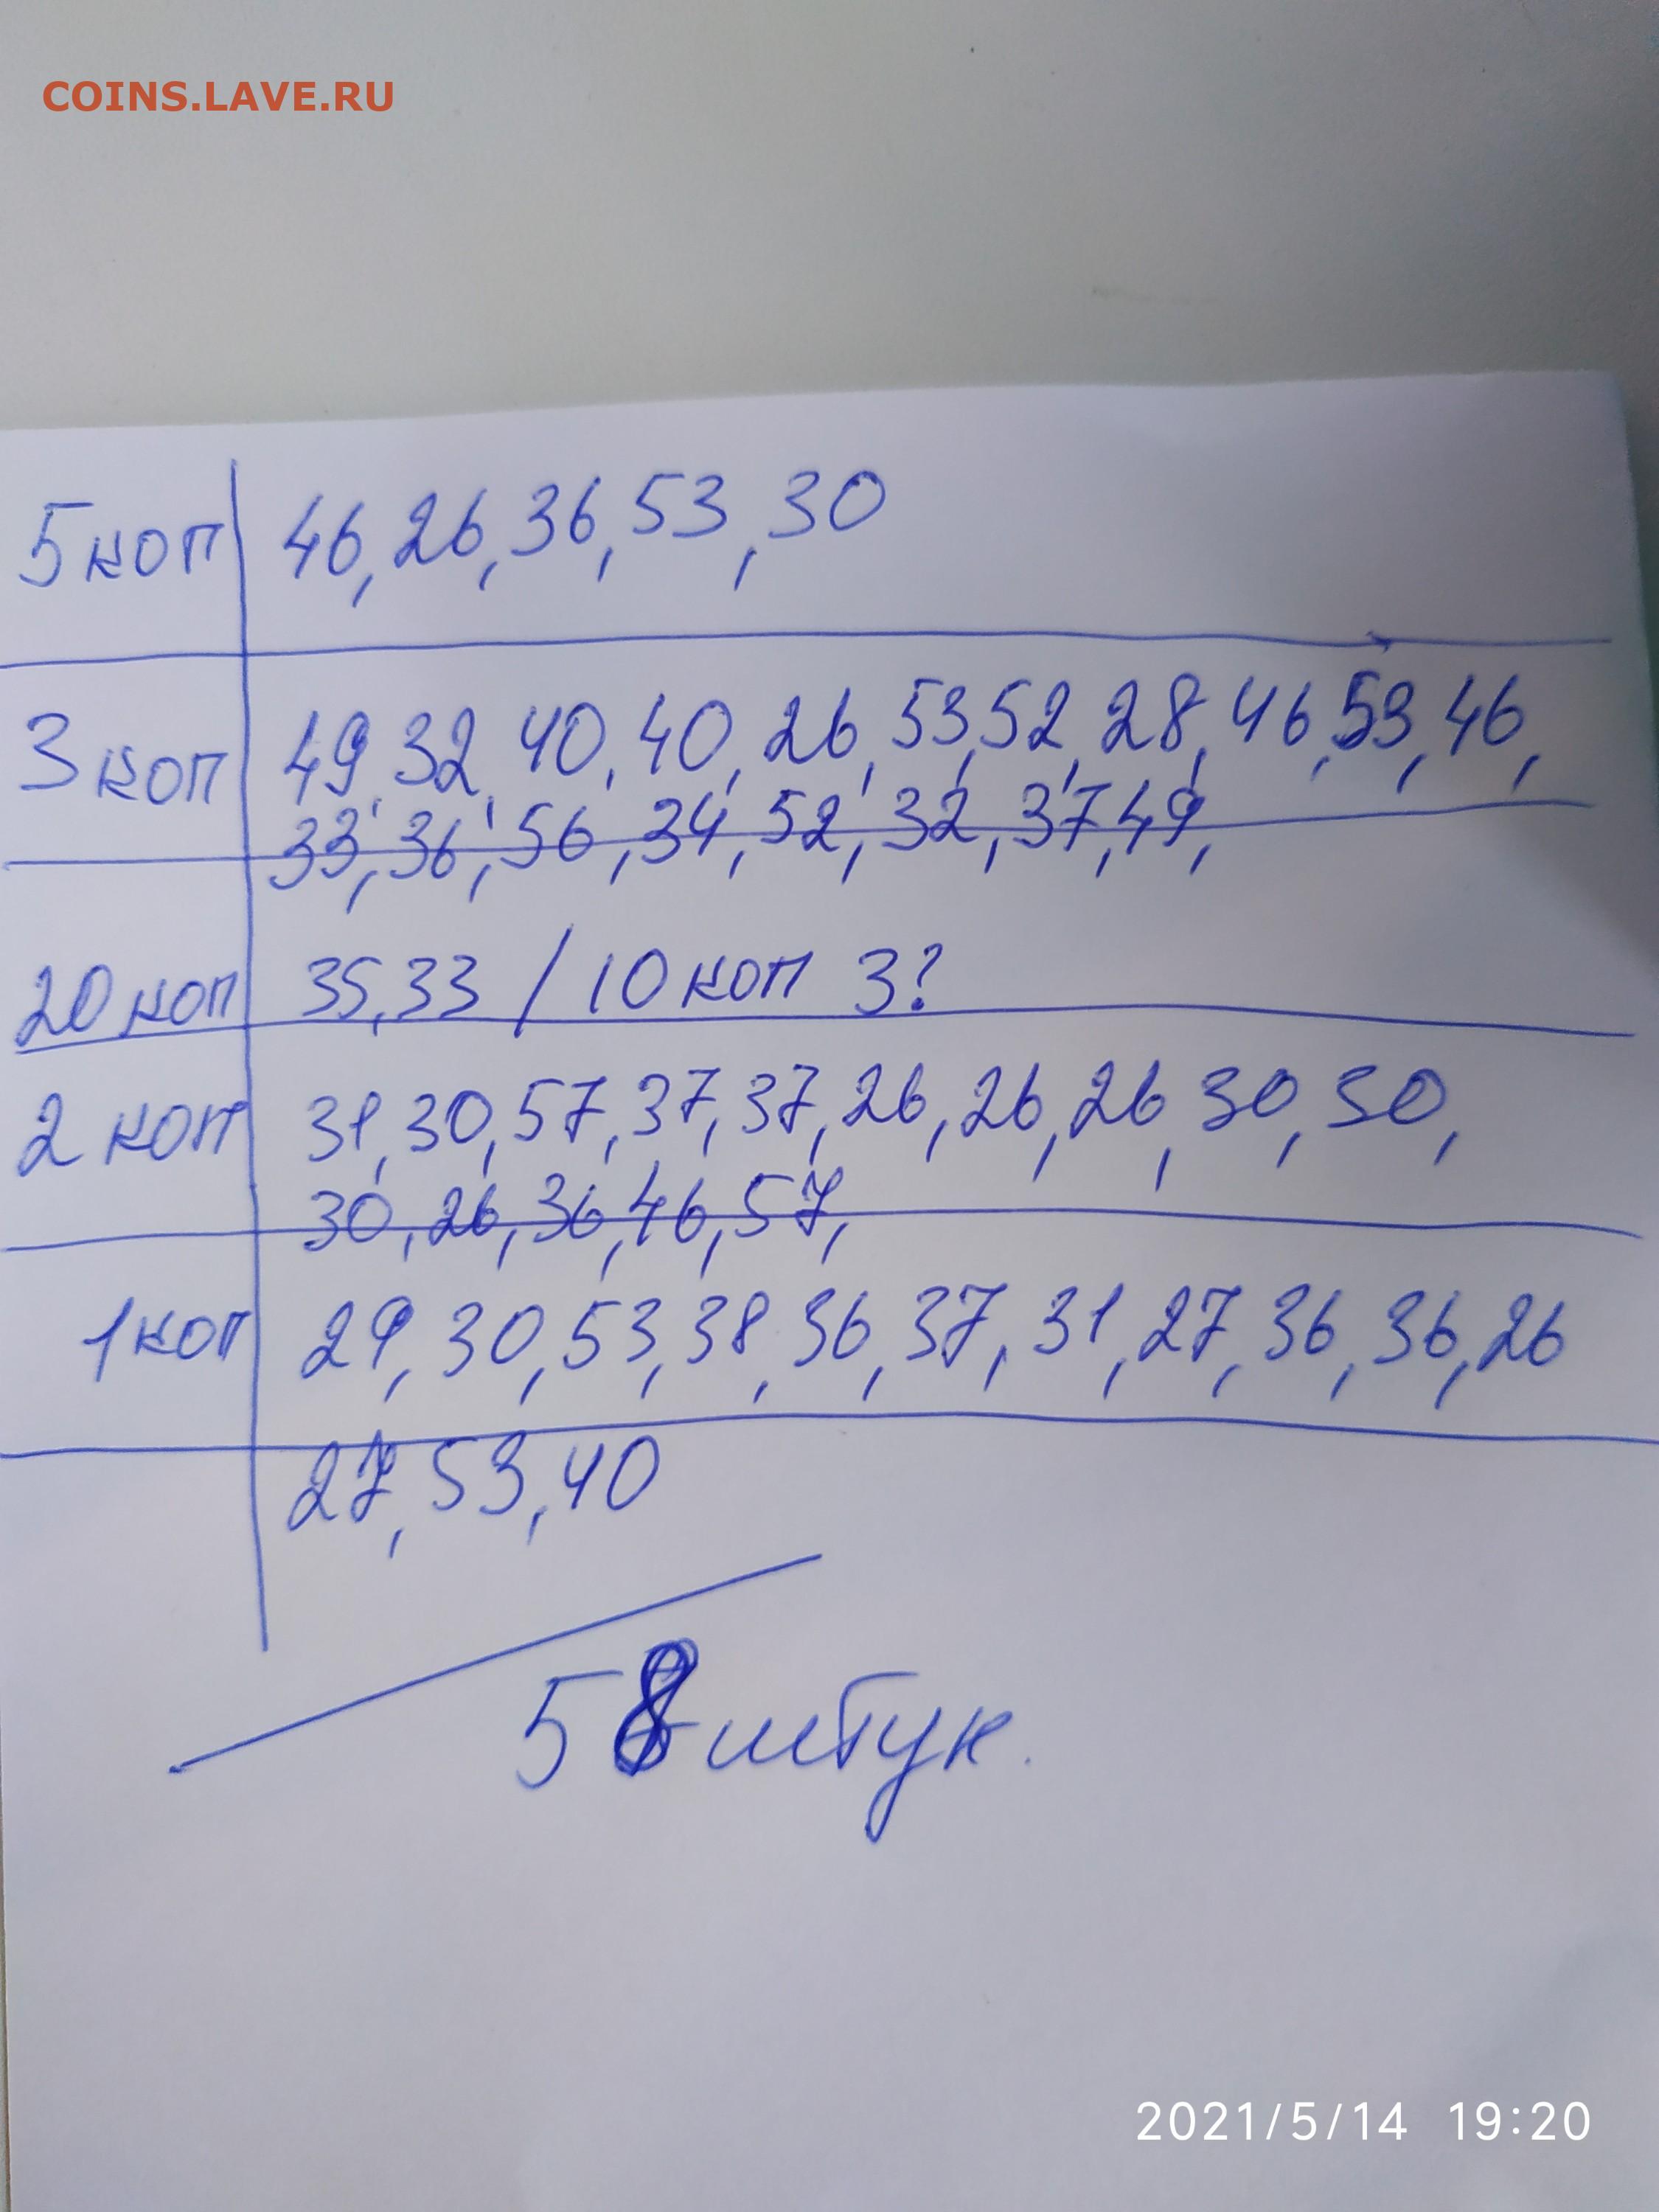 COINS.LAVE.RU
5 коп 46, 26, 36, 53, 30
3 коп 49, 32, 40, 40, 26, 53, 52, 28, 46, 53, 46,
33, 36, 56, 34, 52, 32, 37, 49,
20 коп 35, 33 / 10 коп 3?
2 коп 31, 30, 57, 37, 37, 26, 26, 26, 30, 30,
30, 26, 36, 46, 57,
1 коп 29, 30, 53, 38, 36, 37, 31, 27, 36, 36, 26
27, 53, 40
58 штук.
2021/5/14 19:20